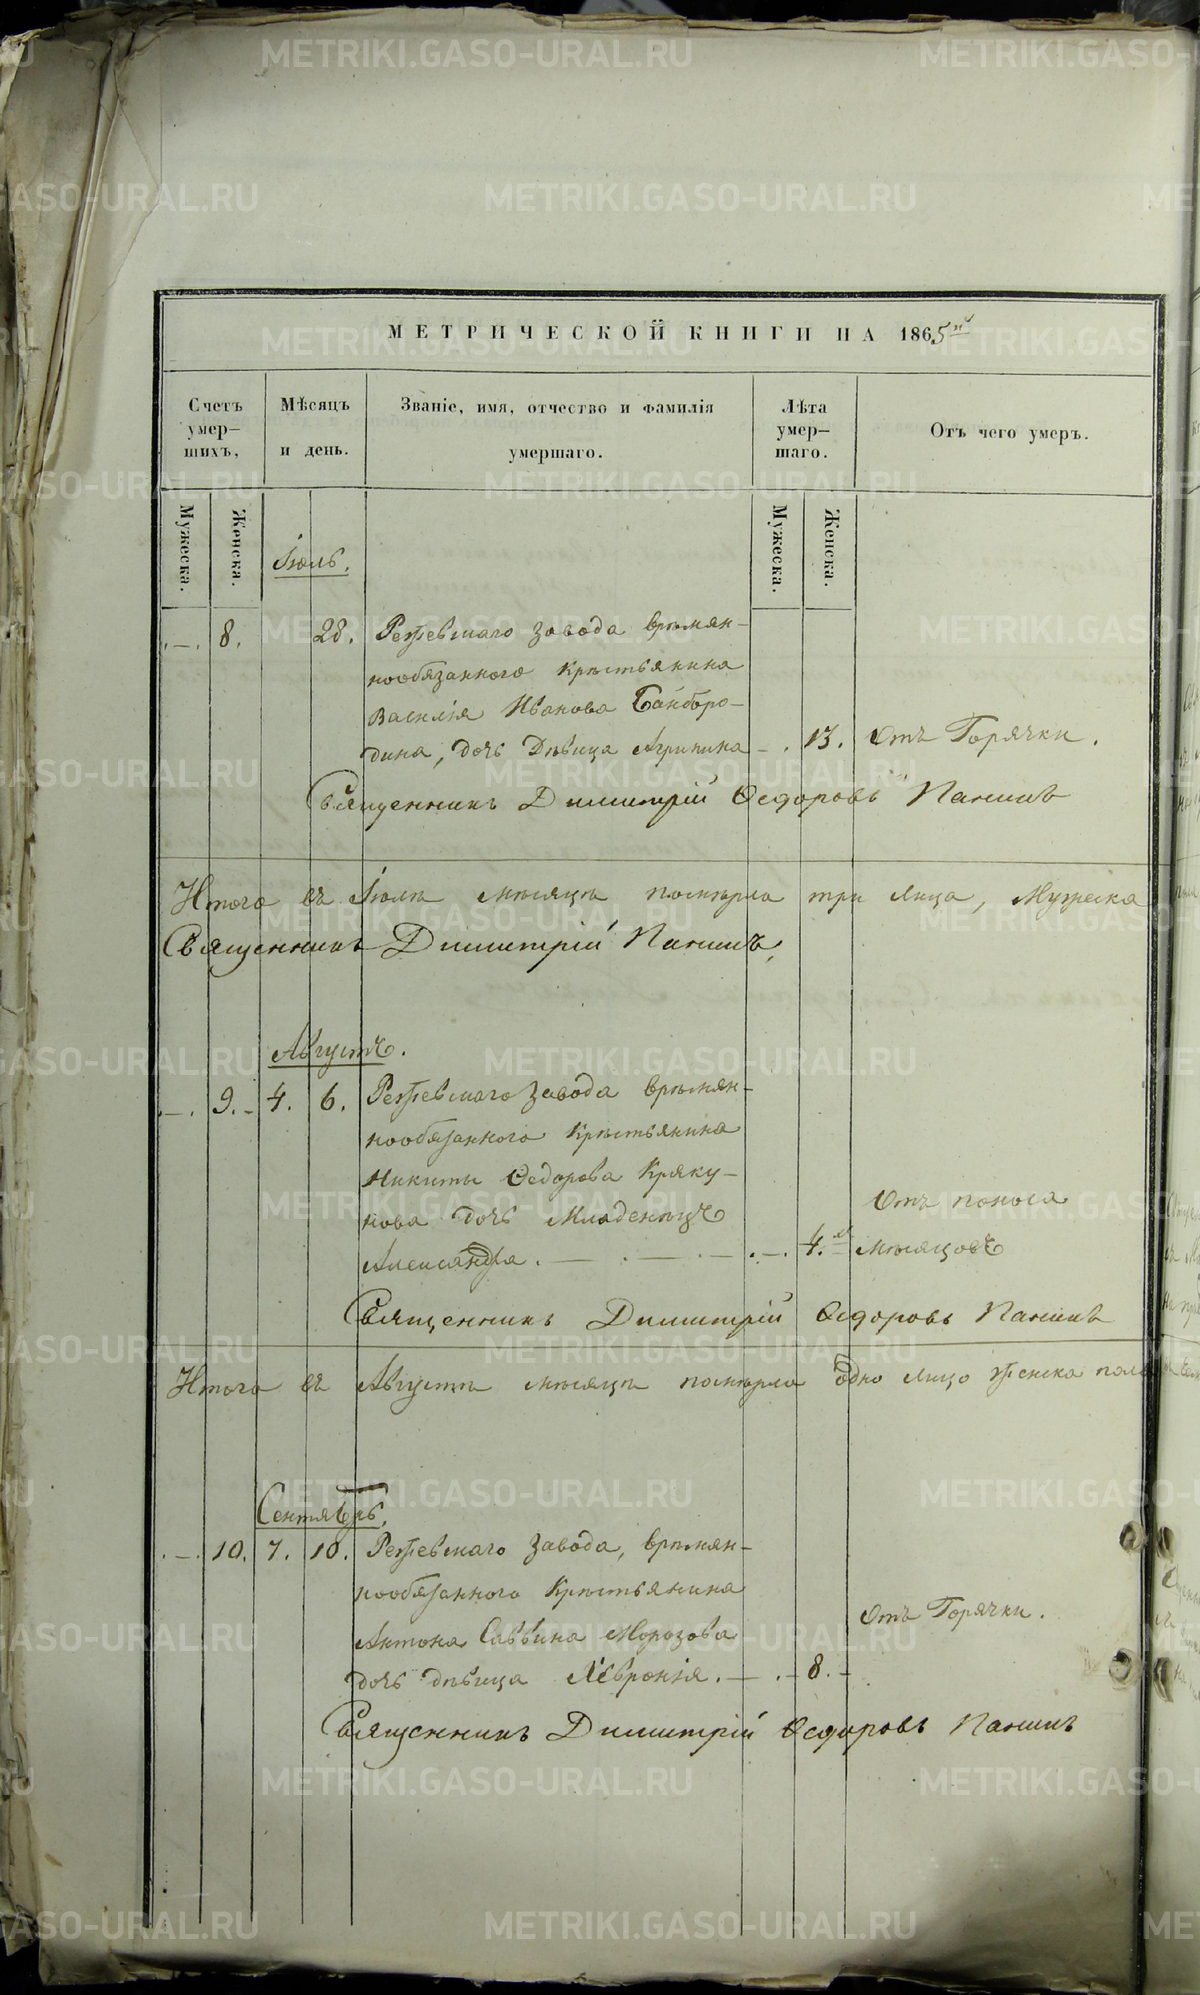 МЕТРИЧЕСКОЙ КНИГИ НА 1865й
Счетъ умер-шихъ.
Мѣсяцъ и день.
Званіе, имя, отчество и фамилія умершаго.
Лѣта умер-шаго.
Отъ чего умеръ.
Мужеска.
Женска.
Мужеска.
Женска.
Іюль.
8. 28. Режевскаго завода времян-
нообязанного крестьянина
Василія Иванова Байборо-
дина, дочь Дѣвица Агрипина 13. Отъ Горячки.
Священникъ Димитрій Ѳедоровъ Панинъ
Итого въ Іюлѣ мѣсяцѣ померло три лица, Мужеска
Священникъ Димитрій Панинъ
Августъ.
9. 4. 6. Режевскаго завода времян-
нообязанного Крестьянина
Никиты Ѳедорова Кряку-
нова дочь Младенецъ Отъ поноса
Александра. 4. мѣсяцовъ
Священникъ Димитрій Ѳедоровъ Панинъ
Итого въ Августѣ мѣсяцѣ померло одно лицо женска пола
Сентябрь.
10. 7. 10. Режевскаго завода, времян-
нообязанного Крестьянина
Антона Саввина Морозова Отъ Горячки.
дочь дѣвица Ѳевронія. 8.
Священникъ Димитрій Ѳедоровъ Панинъ
METRIKI.GASO-URAL.RU